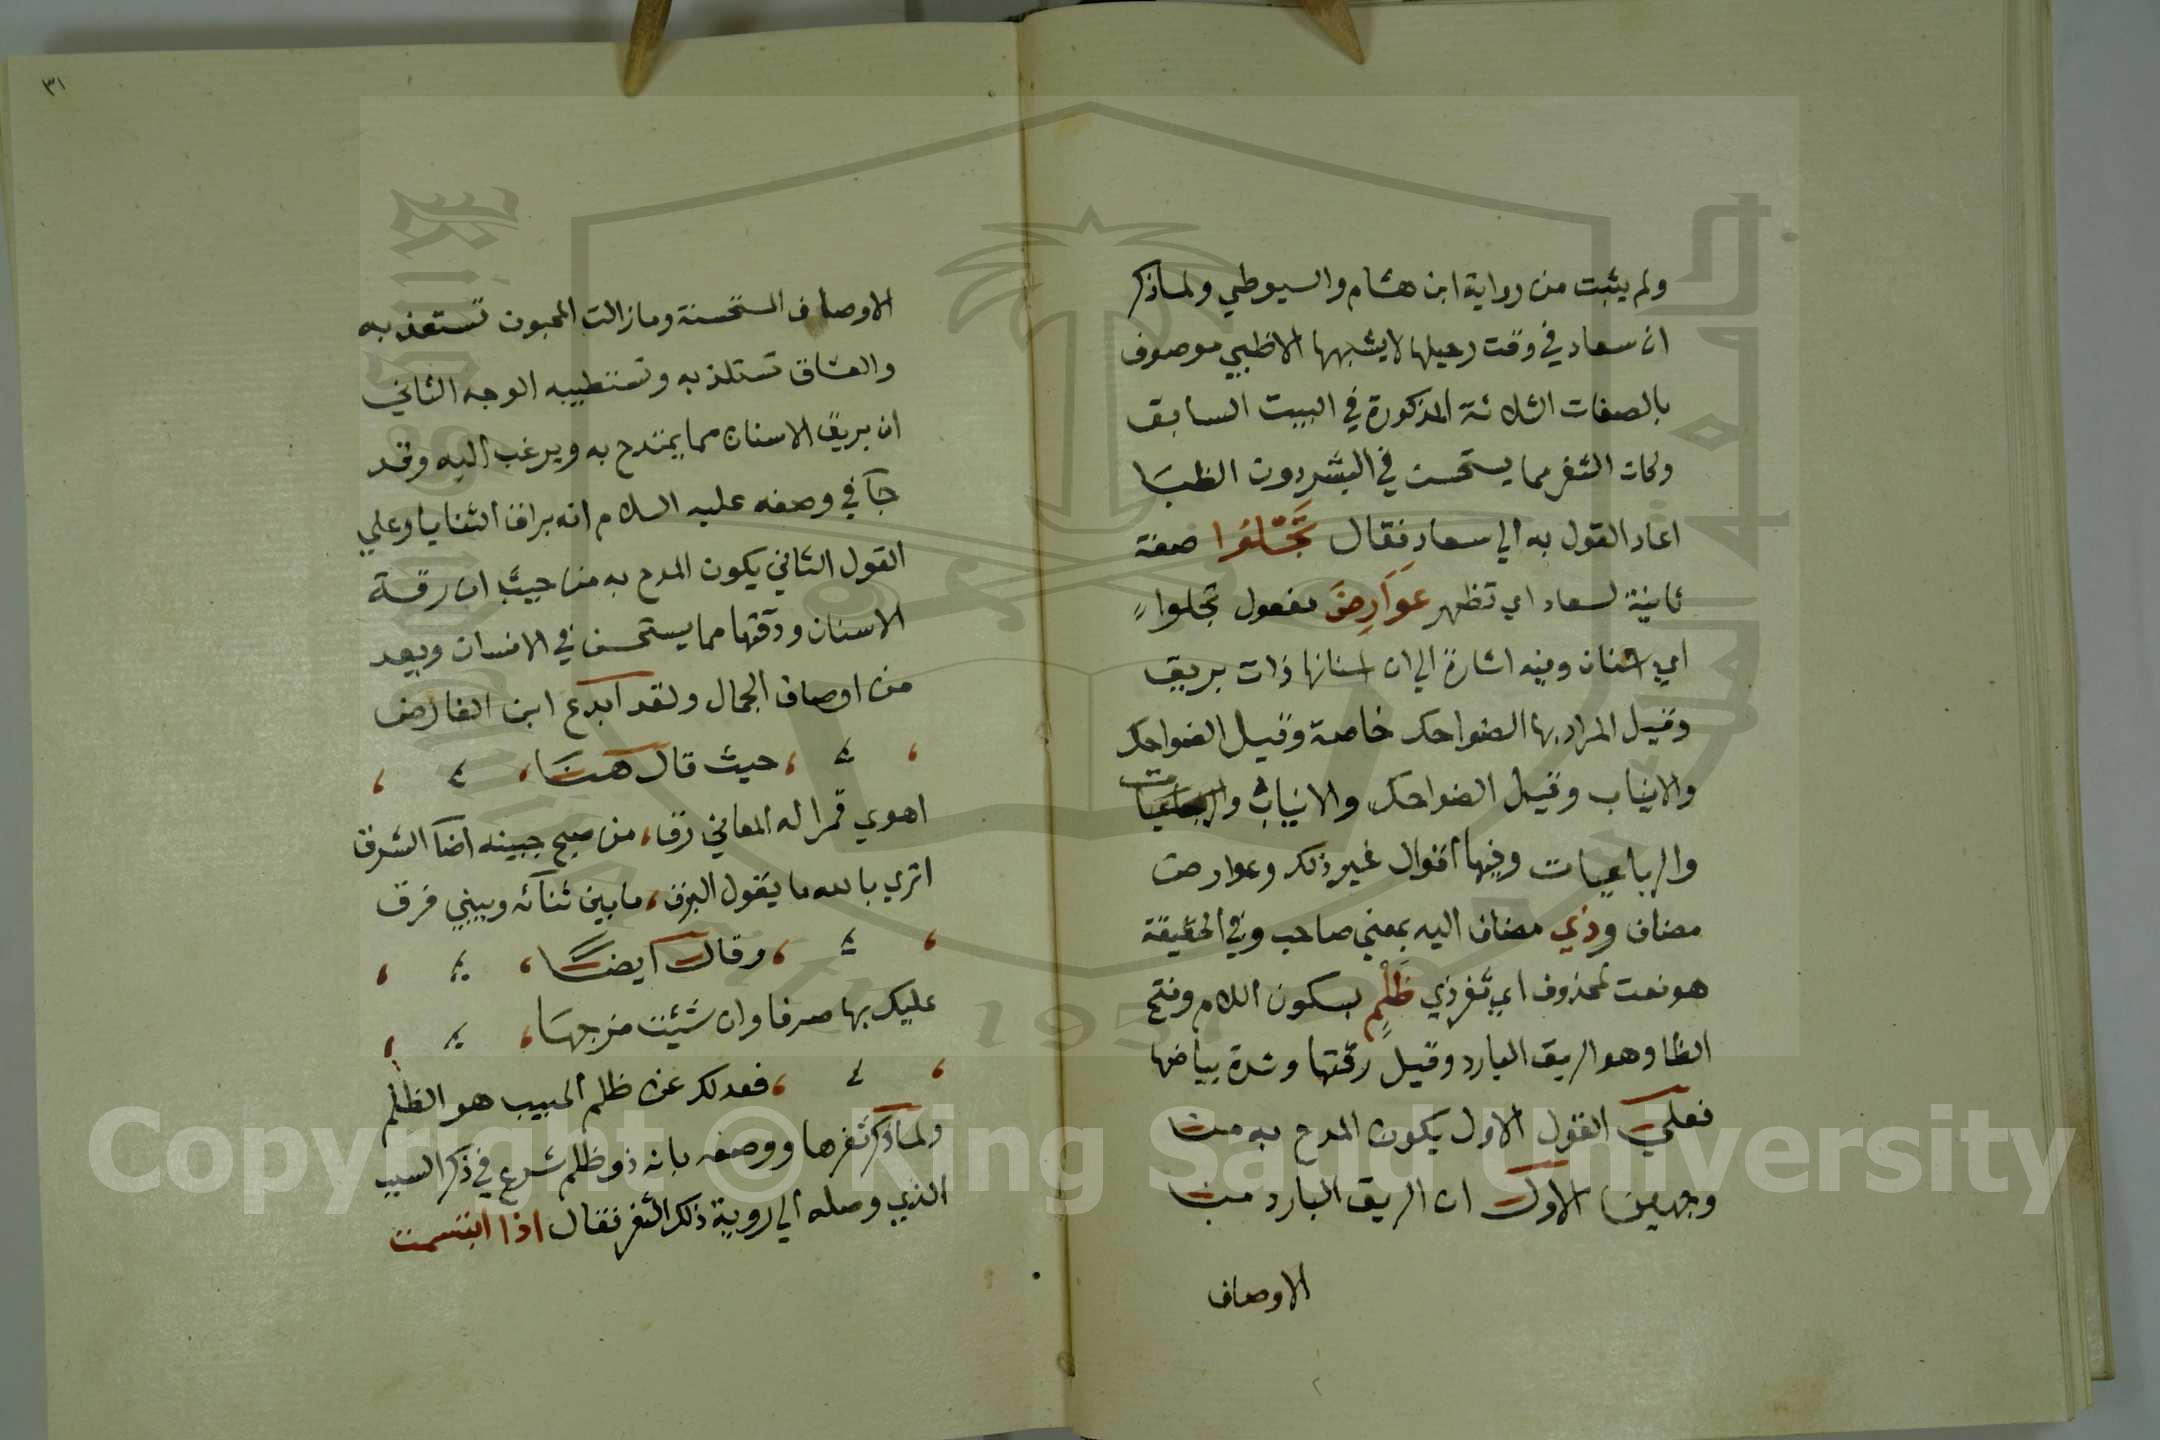 ولم يثبت من رواية ابن هشام والسيوطي ولما ذكر
ان سعاد في وقت رحيلها لا يشبهها الا ظبي موصوف
بالصفات الثلاثة المذكورة في البيت السابق
وكان الثغر مما يستحسن في البشر دون الظبا
اعاد القول به الي سعاد فقال تَجْلُوا صفة
ثانية لسعاد اي تظهر عَوَارِضَ مفعول تجلوا
اي اسنان وفيه اشارة الي ان اسنانها ذات بريق
وقيل المراد بها الضواحك خاصة وقيل الضواحك
والانياب وقيل الضواحك والانياب
والرباعيات وفيها اقوال غير ذلك وعوارض
مضاف وذي مضاف اليه بمعني صاحب وفي الحقيقة
هو نعت لمحذوف اي ثغر ذي ظَلْمٍ بسكون اللام وفتح
الظا وهو الريق البارد وقيل رقتها وشدة بياضها
فعلي القول الاول يكون المدح به من
وجهين الاول ان الريق البارد من
الاوصاف
٣١
الاوصاف المستحسنة وما زالت المحبون تستعذ به
والعشاق تستلذ به وتستطيبه الوجه الثاني
ان بريق الاسنان مما يمتدح به ويرغب اليه وقد
جآ في وصفه عليه السلام انه براق الثنايا وعلي
القول الثاني يكون المدح به من حيث ان رقة
الاسنان ودقتها مما يستحسن في الانسان ويعد
من اوصاف الجمال ولقد ابدع ابن الفارض
حيث قال هنا
اهوي قمرا له المعاني رق، من صبح جبينه اضآ الشرق
اتري بالله ما يقول البرق، ما بين ثنآئه وبيني فرق
وقال ايضا
عليك بها صرفا وان شئت مزجها
فعدلك عن ظلم الحبيب هو الظلم
ولما ذكر ثغرها ووصفه بانه ذو ظلم شرع في ذكر السبب
الذي وصله الي روية ذلك الثغر فقال اذا ابتسمت
Copyright © King Saud University
1957